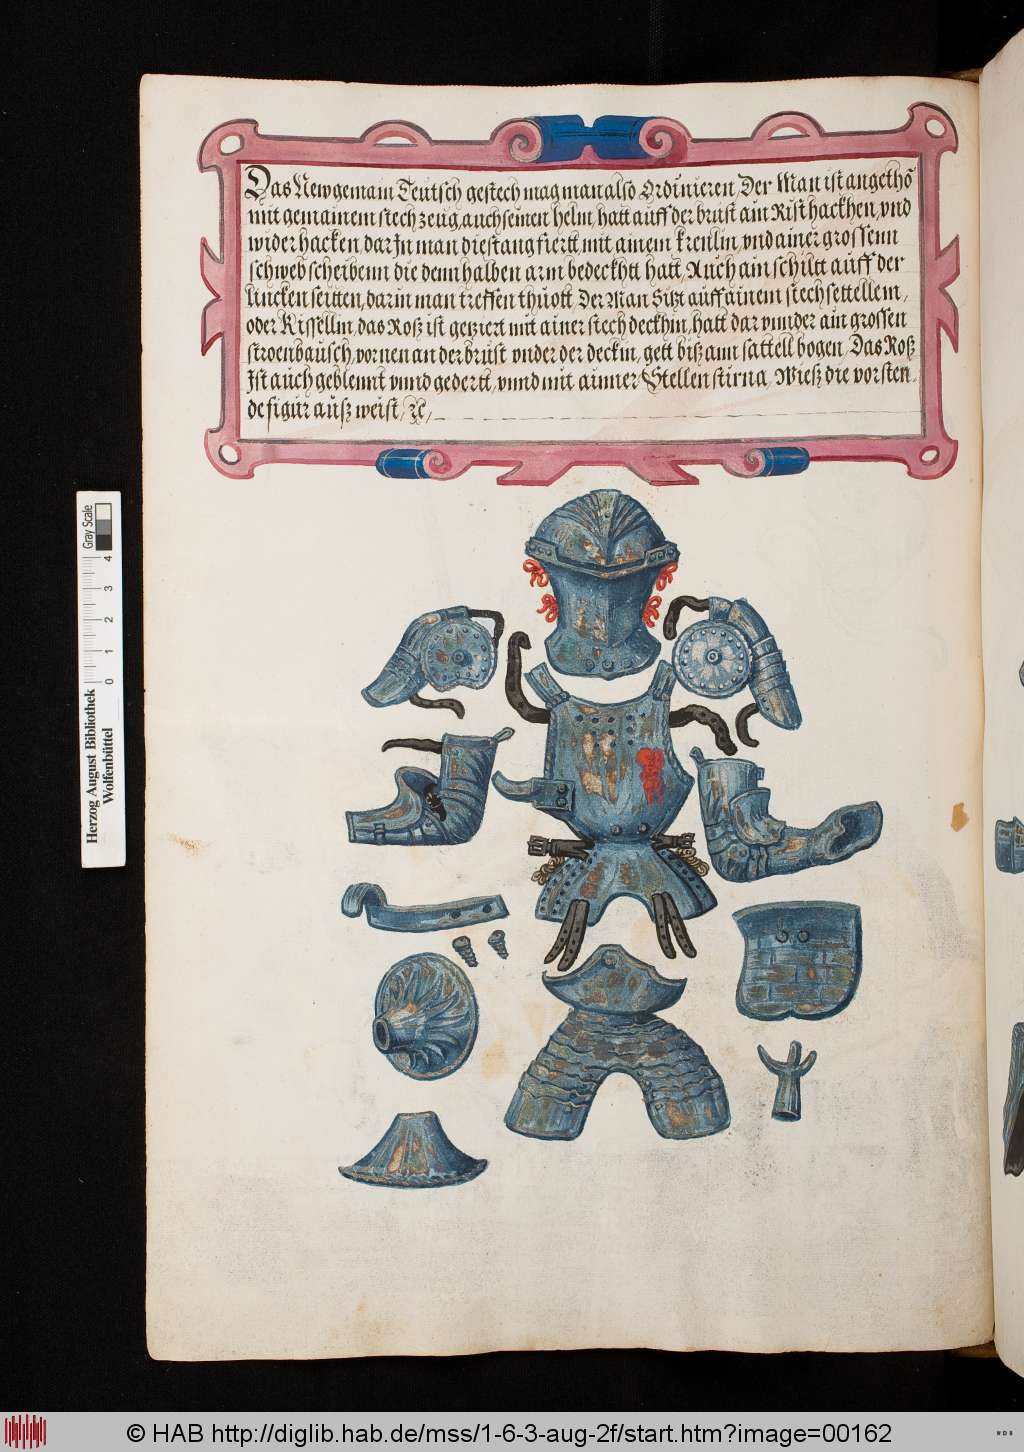 Das New gemain Teutsch gestech mag man also Ordinieren, Der Man ist angethõ
mit gemainem stech zeug, auch seinen helm, hatt auff der brust ain Rist hackhen, vnd
wider hacken dar Jn man die stang fiertt, mit ainem krenlin, vnd ainer grossenn
schweb scheibenn die denn halben arm bedeckhtt hatt, Auch ain schiltt auff der
lincken seitten, darin man treffen thuott. Der Man Sitzt auff ainem stech settellem,
oder Kissellin, das Roß ist getziert mit ainer stech deckhin, hatt dar vnnder ain grossen
stroenbausch, vornen an der brust vnder der deckin, gett biß ann sattell bogen, Das Roß
Ist auch geblennt vnnd gedertt, vnnd mit ainner Stellen stirna, Wieß die vorsten,
de figur außweist, ꝛc,
Herzog August Bibliothek
Wolfenbüttel
0 1 2 3 4
Gray Scale
© HAB http://diglib.hab.de/mss/1-6-3-aug-2f/start.htm?image=00162
WDB